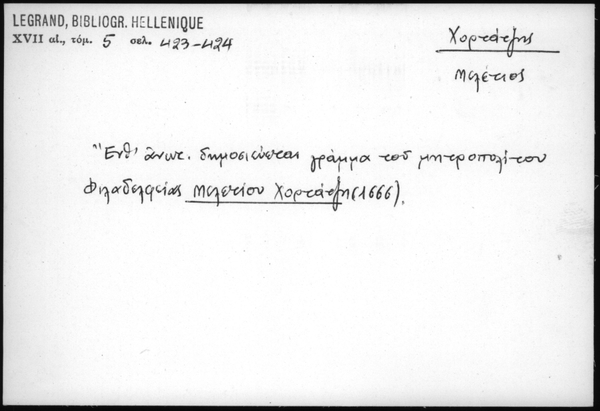 LEGRAND, BIBLIOGR. HELLENIQUE
XVII αἰ., τόμ. 5 σελ. 423-424
Χορτάτζης
Μελέτιος
"Ἔνθ' ἀνωτ. δημοσιεύεται γράμμα τοῦ μητροπολίτου
Φιλαδελφείας Μελετίου Χορτάτζη (1666).